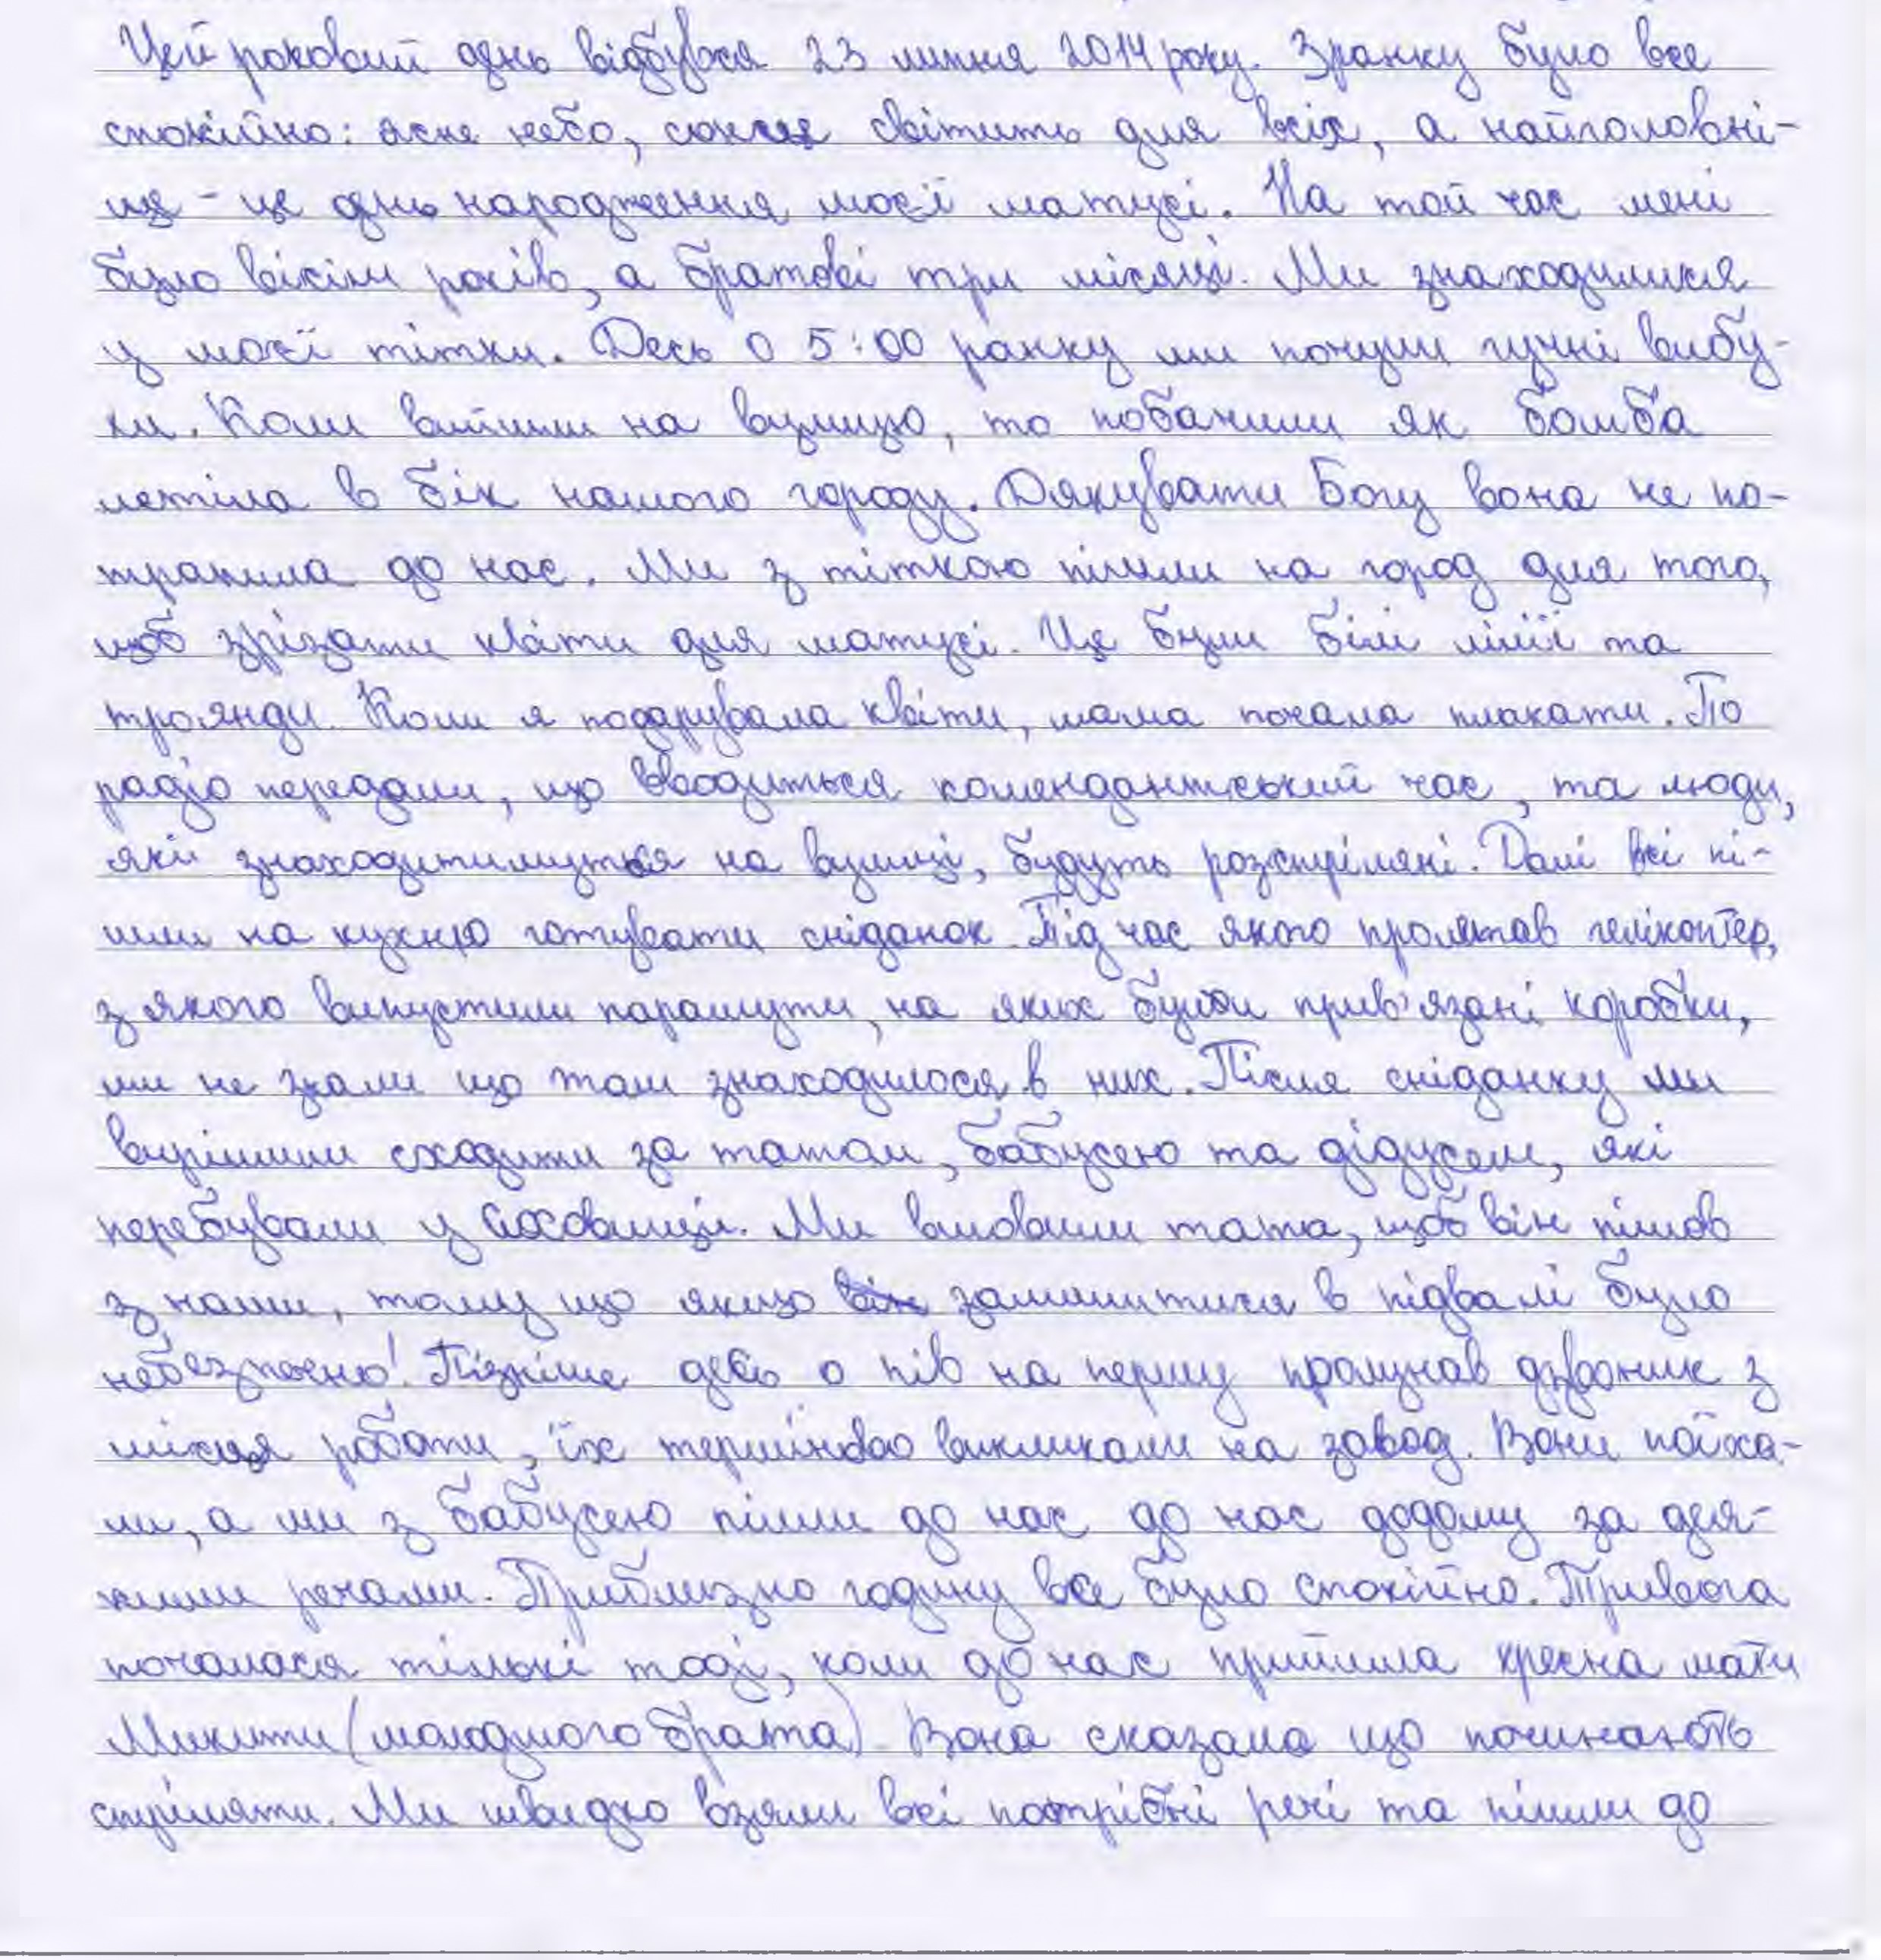 Цей роковий день відбувся 23 липня 2014 року. Зранку було все
спокійно: ясне небо, сонце світить для всіх, а найголовні-
ше - це день народження моєї матусі. На той час мені
було вісім років, а братові три місяці. Ми знаходилися
у моєї тітки. Десь о 5:00 ранку ми почули гучні вибу-
хи. Коли вийшли на вулицю, то побачили як бомба
летіла в бік нашого городу. Дякувати Богу вона не по-
трапила до нас. Ми з тіткою пішли на город для того,
щоб зрізати квіти для матусі. Це були білі лілії та
троянди. Коли я подарувала квіти, мама почала плакати. По
радіо передали, що вводиться комендантський час, та люди,
які знаходитимуться на вулиці, будуть розстріляні. Далі всі пі-
шли на кухню готувати сніданок. Під час якого пролітав гелікоптер,
з якого випустили парашути, на яких були прив'язані коробки,
ми не знали що там знаходилося в них. Після сніданку ми
вирішили сходити за татом, бабусею та дідусем, які
перебували у сховищі. Ми вмовили тата, щоб він пішов
з нами, тому що якщо залишитися в підвалі було
небезпечно! Пізніше десь о пів на першу пролунав дзвоник з
місця роботи, їх терміново викликали на завод. Вони поїха-
ли, а ми з бабусею пішли до нас до нас додому за дея-
кими речами. Приблизно годину все було спокійно. Тривога
почалася тількі тоді, коли до нас прийшла хресна мати
Микити (молодшого брата). Вона сказала що починають
стріляти. Ми швидко взяли всі потрібні речі та пішли до